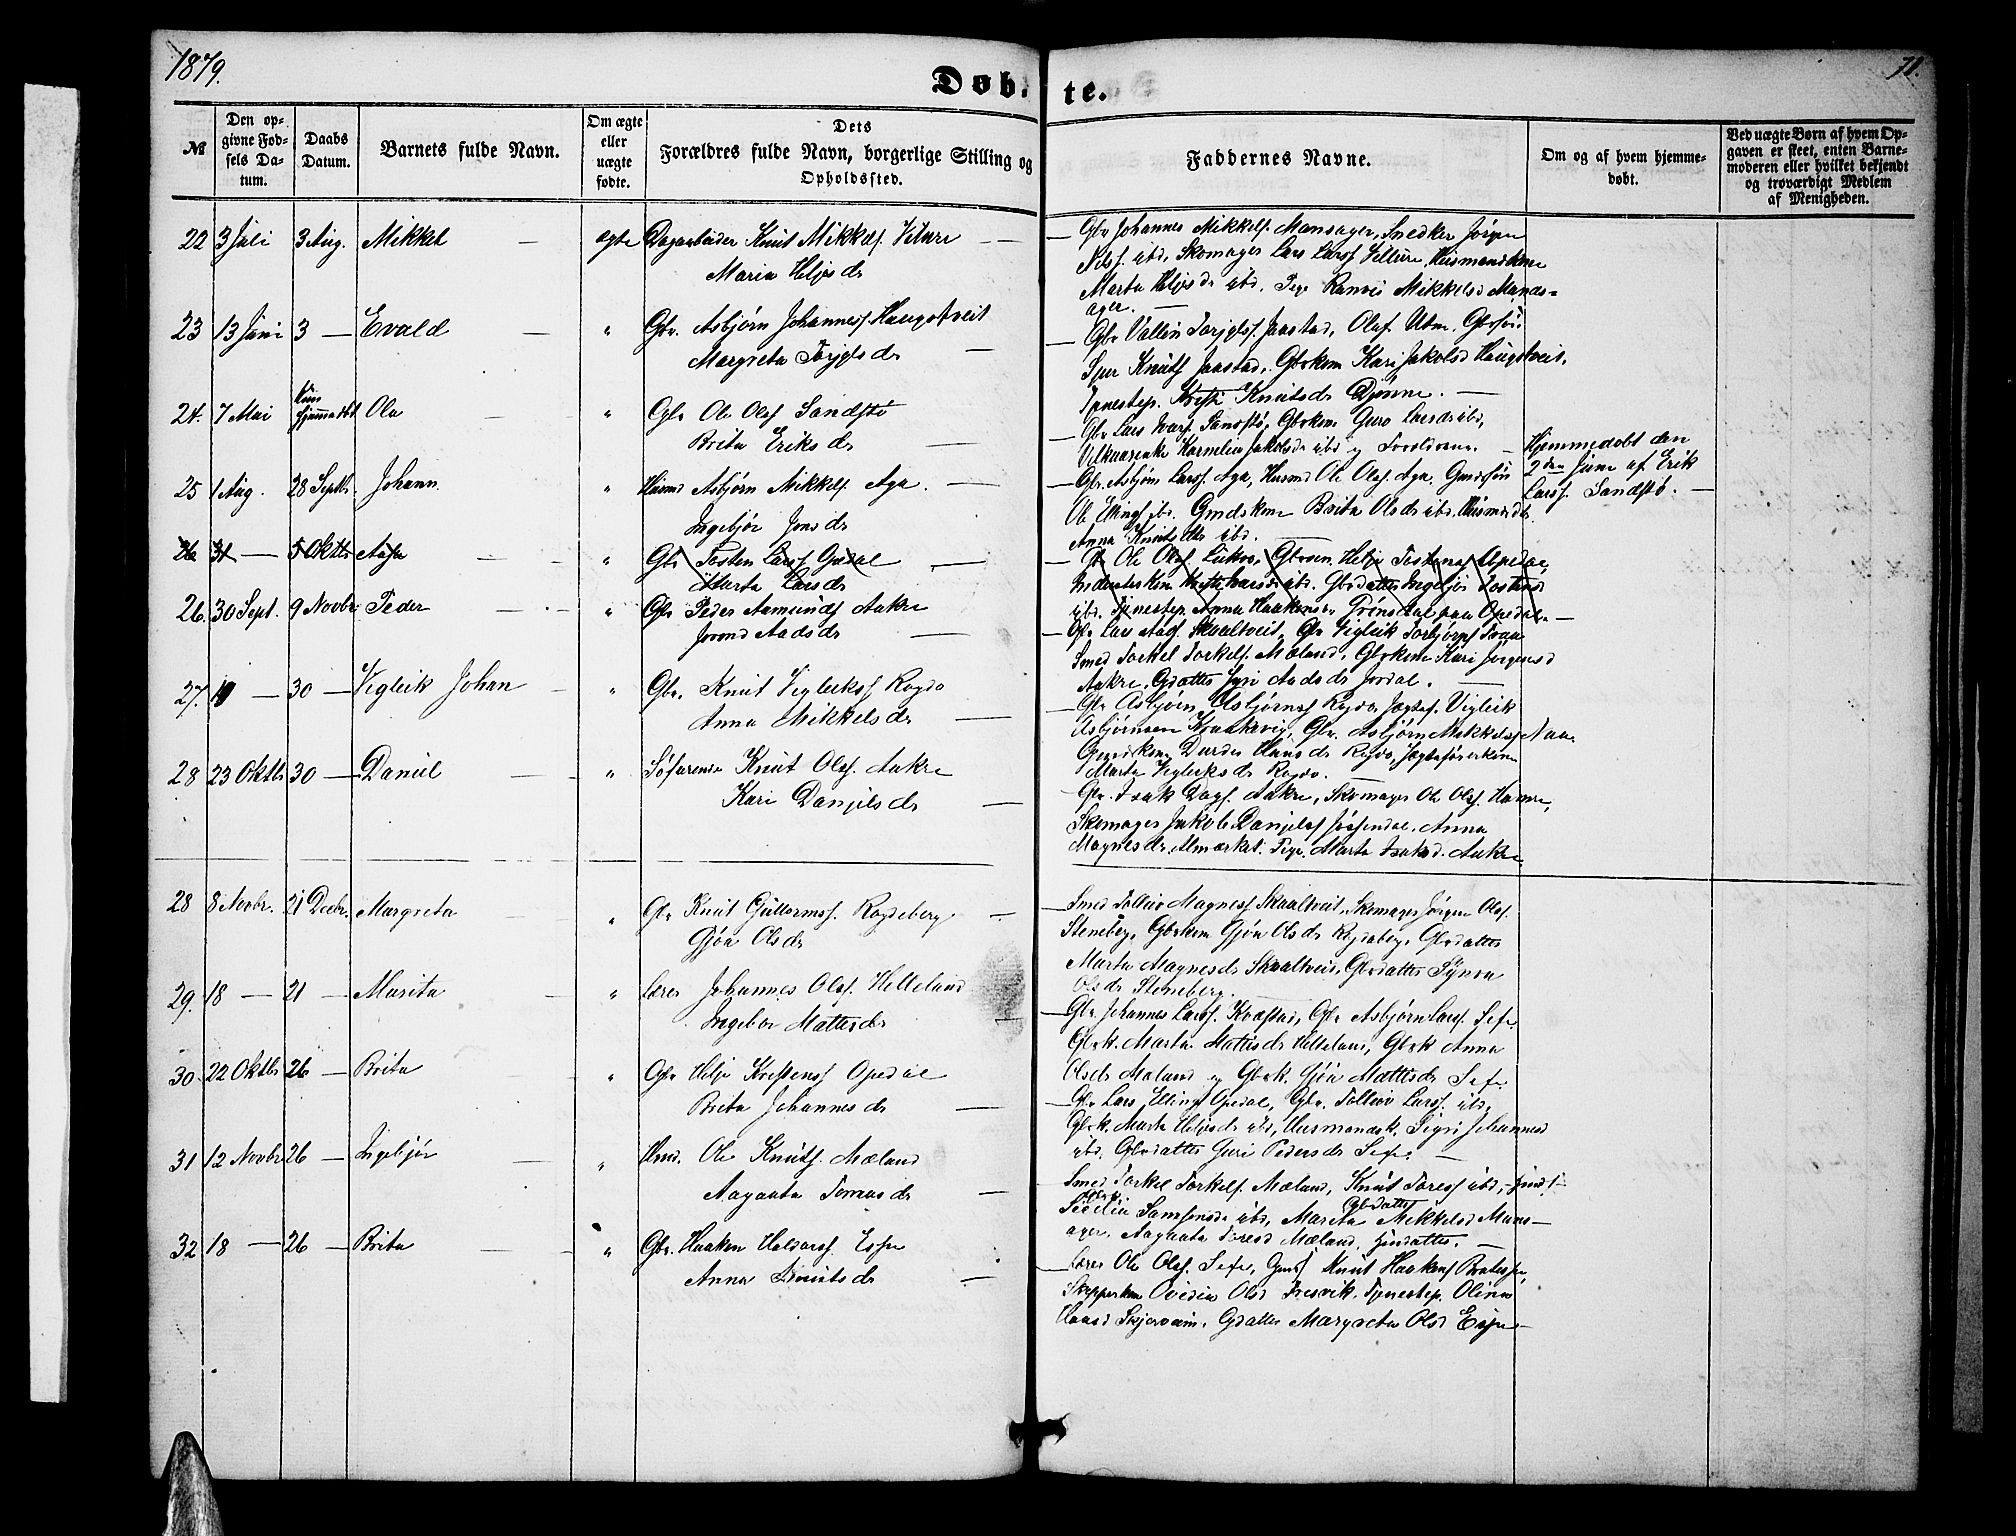 1879.
Døb-
te.
71.
№
Den op-
givne Fød-
sels Da-
tum.
Daabs
Datum.
Barnets fulde Navn.
Om ægte
eller
uægte
fødte.
Dets
Forældres fulde Navn, borgerlige Stilling og
Opholdssted.
Faddernes Navne.
Om og af hvem hjemme-
døbt.
Ved uægte Børn af hvem Op-
gaven er skeet, enten Barne-
moderen eller hvilket bekjendt
og troværdigt Medlem
af Menigheden.
22 3 Juli 3 Aug. Mikkel — ægte Dagarbeider Knut Mikkels. Vilure —
Maria Heljesdr
— Gbr Johannes Mikkels. Mansager, Snedker Jørgen
Nilss. ibd, Skomager Lars Larss Villure, Husmandskone
Marta Heljesdr ibd. Pige Ranvei Mikkelsd Mands=
ager. —
23 13 Juni 3 — Evald — " Gbr. Asbjørn Johanness Haugstveit
Margreta Torjelsdr —
— Gbr Torjelss. Jaastad, Olaf Utne, Gbrsøn
Sjur Knuts Jaastad, Gbrkone Kari Jakobsd Haugstveit,
Tjenestep. Knutsdr Djønne. —
24. 7 Mai Kun hjemmedbt Ola — " Gbr Ole Olss Sandstø
Brita Eriksdr —
— Gbr Lars Ivars. Sandstø, Gbrkone Guro Larsdr ibd,
Kornelia Jakobsdr ibd
Hjemmedøbt den
2den Juni af Erik
Larss. Sandstø. —
25 1 Aug. 28 Septbr. Johann. " Husmd Asbjørn Mikkels. Aga. —
Ingebjør Jonsdr
— Gbr. Asbjørn Larss Aga, Husmd Ole Olss Aga, Gmdssøn
Ole Ellings ibd. Gmdskone Brita Olsdr ibd, Husmdsdtr
Anna Knutsdtr ibd. —
26 31 — 5 Oktbr Aasa — " Gbr Tosten Larss Opedal —
Marta Larsdr
— Gbr Ole Olss Lutro, Gbrsøn Helje Tostenss Opedal,
Larsdr ibd. Gbrdatter Ingebjør Tostensd
ibd. Tjenestep. Anna Haakensdr Grønsdal paa Opedal. —
26. 30 Sept. 9 Novbr. Peder — " Gbr Peder Aamunds Aakre
Jorond Aadsdr —
— Gbr Lars Aads Skaaltveit, Gbr Vigleik Torbjørns
Smed Torkel Torkels. Mæland, Gbrkone Kari Jørgensd
Aakre, Gdatter Aadsdr Jordal. —
27. 10 — 30 — Vigleik Johan — " Gbr. Knut Vigleiks Rogdo
Anna Mikkelsdr —
— Gbr Asbjørn Asbjørnss Rogdo, Vigleik
Asbjørnsen Kjaakevig, Gbr. Asbjørn Mikkelss Naa,
Gmdskone Durdei Hansdr Rogdo, Jægteførerkone
Marta Vigleiksdr Rogdo. —
28 23 Oktbr 30 — Daniel — " Søfarende Knut Ols. Aakre
Kari Danjelsdr —
Gbr. Isak Dags. Aakre, Skomager Ole Ols. Hamre,
Skomager Jakob Danjels Jøssendal, Anna
Magnesdr Almerket. Pige Marta Isaksd. Aakre.
28 8 Novbr. 21 Decbr. Margreta — " Gbr Knut Guttormss. Rogdeberg —
Gjøa Olsdr
— Smed Tolleiv Magness. Skaaltveit, Skomager Jørgen Ols.
Steneberg, Gbrkone Gjøa Olsdr Rogdeberg, Gbrdatter
Marta Magnesdr Skaaltveit, Gbrdatter Synva
Olsdr Steneberg.
29. 18 — 21 — Marita — " Lærer Johannes Ols. Helleland
Ingebor Mattisdr —
— Gbr. Johannes Larss. Kvæstad, Gbr Asbjørn Larss. Sexe
Gbrk. Marta Mattisdr Helleland, Gbrk Anna
Olsdr Maland og Gbrk. Gjøa Mattisdr Sexe
30. 22 Oktbr 26 — Brita — " Gbr Helje Kristenss Opedal
Brita Johannesdr —
— Gbr Lars Ellings Opedal, Gbr. Tolleiv Larss. ibd,
Gbrk. Marta Heljesdr ibd, Husmandsk. Sigri Johannesd
ibd. Gbrdatter Guri Pedersdr Sexe. —
31 12 Novbr 26 — Ingebjør — " Hmd. Ole Knuts. Mæland
Aagaata Tomasdr —
— Smed Torkel Torkels. Mæland, Knut Toress ibd,
Secilia Samsonsdr ibd, Marita Gbrdatter Mikkelsd Mans—
ager, Aagaata Toresd Mæland, —
32 18 — 26 — Brita — " Gbr. Haaken Haldorss Espe
Anna Knutsdr —
— Lærer Ole Ols. Sexe, Knut Haakens
Skipperkone Ovedia Olsd Fresvik, Tjenestep. Olina
Hansd Skjervheim, Gdatter Margreta Olsd Espe —